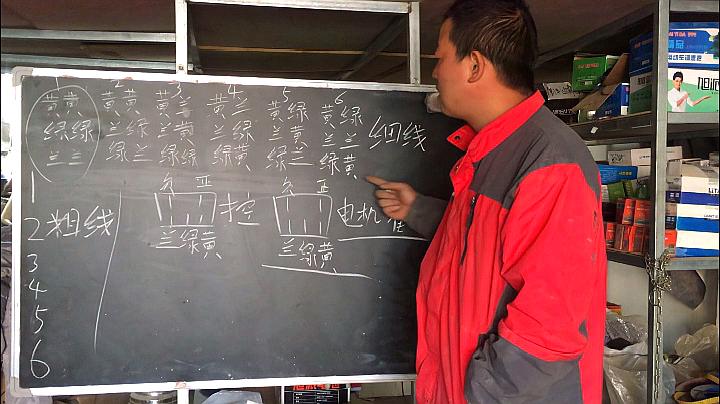 2 3 4 5 6
黄黄 黄黄 黄兰 黄兰 黄绿 黄绿
绿绿 兰绿 兰黄 兰绿 黄兰 兰兰 细线
兰兰 绿兰 绿绿 绿黄 绿兰 绿黄
1 负 正 负 正
2 粗线 控 电机
兰绿黄 兰绿黄
3
4
5
6
旭派